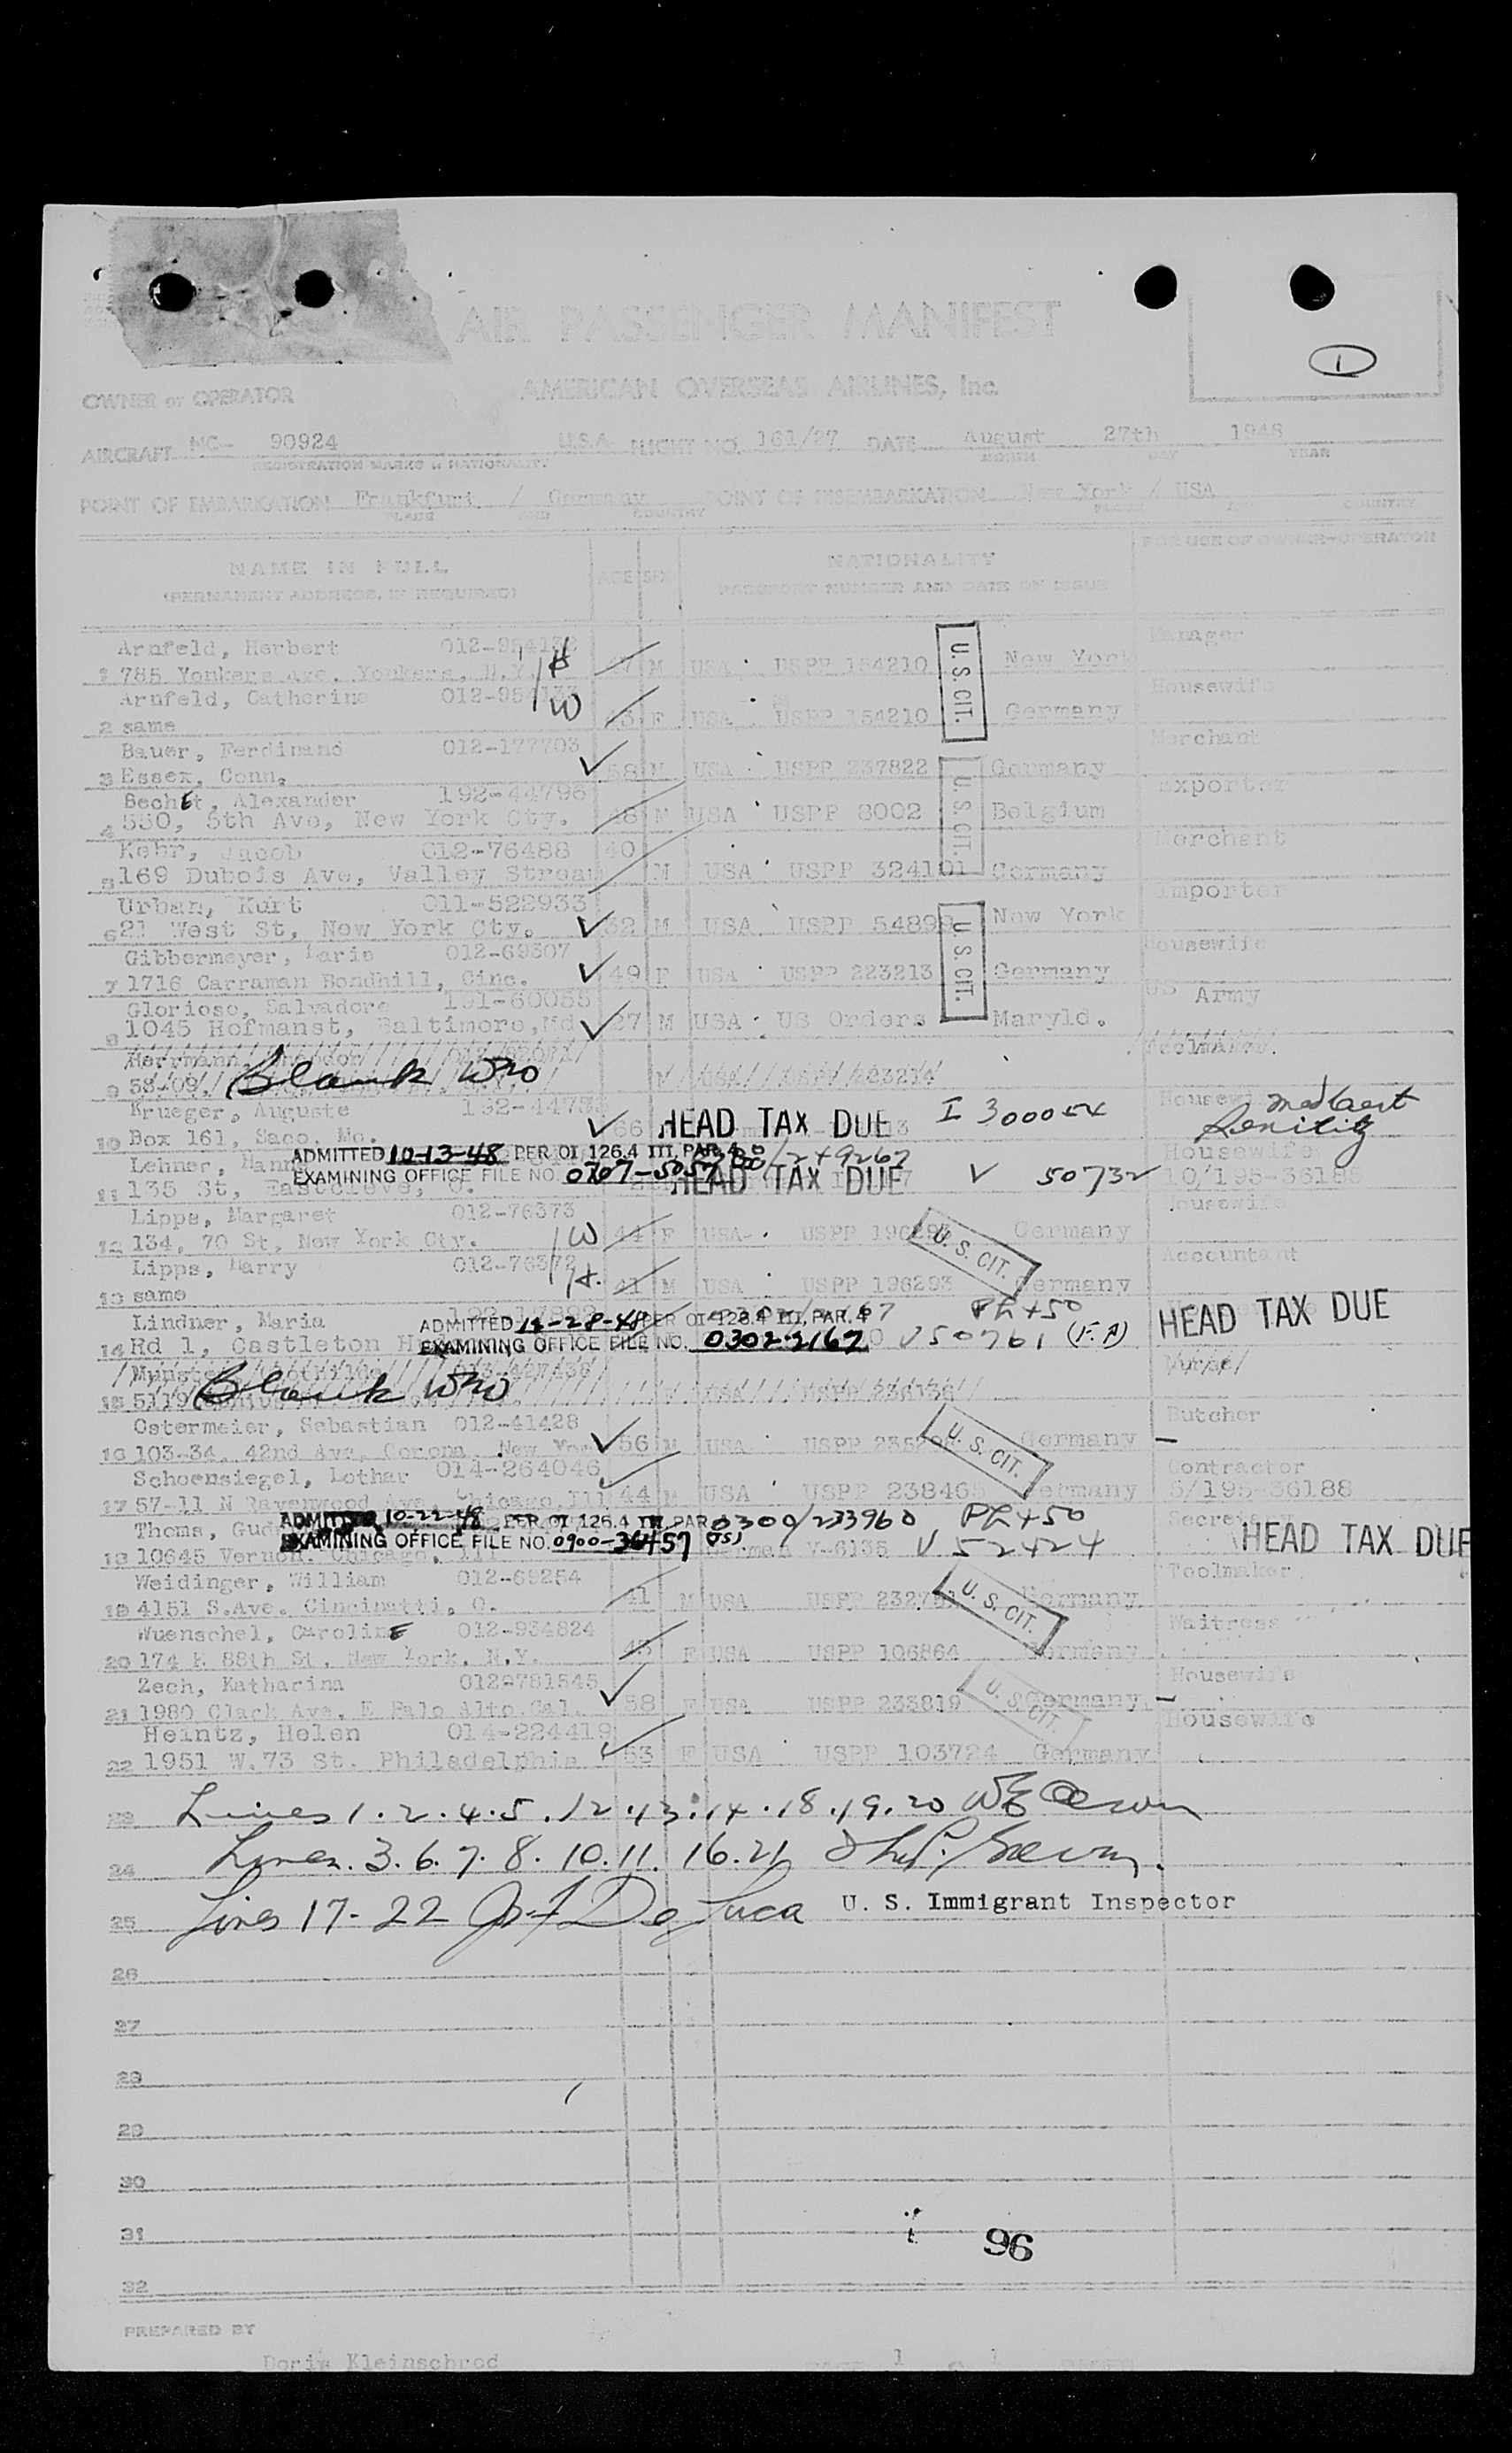 AIR PASSENGER MANIFEST
1
OWNER or OPERATOR AMERICAN OVERSEAS AIRLINES, Inc.
AIRCRAFT NC- 90924 U.S.A. FLIGHT NO. 161/27 DATE August 27th 1948
REGISTRATION MARKS & NATIONALITY MONTH DAY YEAR
POINT OF EMBARKATION Frankfurt / Germany POINT OF DISEMBARKATION New York / USA
PLACE AND COUNTRY PLACE AND COUNTRY
FOR USE OF OWNER-OPERATOR
NAME IN FULL AGE SEX NATIONALITY
(PERMANENT ADDRESS, IF REQUIRED) PASSPORT NUMBER AND DATE OF ISSUE
Arnfeld, Herbert 012-954132 Manager
1 785 Yonkers Ave, Yonkers, N.Y. H 47 M USA USPP 154210 U.S. CIT. New York
Arnfeld, Catherine 012-954133 W Housewife
2 same 43 F USA USPP 154210 Germany
Bauer, Ferdinand 012-177703 Merchant
3 Essex, Conn. 58 M USA USPP 237822 Germany
BechEt, Alexander 192-44796 Exporter
4 550, 5th Ave, New York Cty. 48 M USA USPP 8002 U.S. CIT. Belgium
Kehr, Jacob 012-76488 40 Merchant
5 169 Dubois Ave, Valley Stream M USA USPP 324101 Germany
Urban, Kurt 011-522933 Importer
6 21 West St, New York Cty. 32 M USA USPP 54899 New York
Gibbermeyer, Marie 012-69307 Housewife
7 1716 Carraman Bondhill, Cinc. 49 F USA USPP 223213 U.S. CIT. Germany
Glorioso, Salvadore 191-60055 US Army
8 1045 Hofmanst, Baltimore, Md 27 M USA US Orders Maryld.
Herrmann,
9 58/09 Blank M USA
Krueger, Auguste 192-4473 Housewi Med Cert
10 Box 161, Saco, Me. 66 HEAD TAX DUE I 300054 Senility
ADMITTED 10-13-48 PER OI 126.4 III, PAR. 4 /249267
Lehner, Hann Housewife
EXAMINING OFFICE FILE NO. 0707-5057 HEAD TAX DUE V 50732
11 135 St, Eastcleve, O. 10/195-36188
Lipps, Margaret 012-76373 Housewife
12 134, 70 St, New York Cty. W 44 F USA USPP 196293 U.S. CIT. Germany
Lipps, Harry 012-76372 Accountant
13 same H. 41 M USA USPP 196293 Germany
Lindner, Maria
ADMITTED 12-28-48 PER OI 126.4 III, PAR. 4 HEAD TAX DUE
14 Rd 1, Castleton EXAMINING OFFICE FILE NO. 0302-2167 V 50761 (F.A)
15 5119 Blank USA
Ostermeier, Sebastian 012-41428 Butcher
16 103-34, 42nd Ave, Corona, New Yor 56 M USA U.S. CIT. Germany
Schoensiegel, Lothar 014-264046 Contractor
17 57-11 N Ravenwood Ave, Chicago, Ill 44 M USA USPP 238465 Germany 5/195-36188
ADMITTED 10-22-48 PER OI 126.4 III, PAR 0300/233960
Thoms, Gud
EXAMINING OFFICE FILE NO. 0900-36457 HEAD TAX DUE
18 10645 Vernon, Chicago, Ill V-6135 V 52424
Weidinger, William 012-69254 Toolmaker
19 4151 S.Ave. Cincinatti, O. 41 M USA U.S. CIT. Germany
Wuenschel, CarolinE 012-934824 Waitress
20 174 E 88th St, New York, N.Y. 45 F USA USPP 106864 Germany
Zech, Katharina 012-781545 Housewife
21 1980 Clark Ave, E Palo Alto.Cal. 58 F USA USPP 233819 U.S. CIT. Germany
Heintz, Helen 014-224419 Housewife
22 1951 W.73 St. Philadelphia 53 F USA USPP 103724 Germany
23 Lines 1.2.4.5.12.13.14.18.19.20
24 Lines. 3.6.7.8.10.11. 16.21
25 Lines 17-22 Jos F De Luca U. S. Immigrant Inspector
26
27
28
29
30
31
96
32
PREPARED BY
Doris Kleinschrod